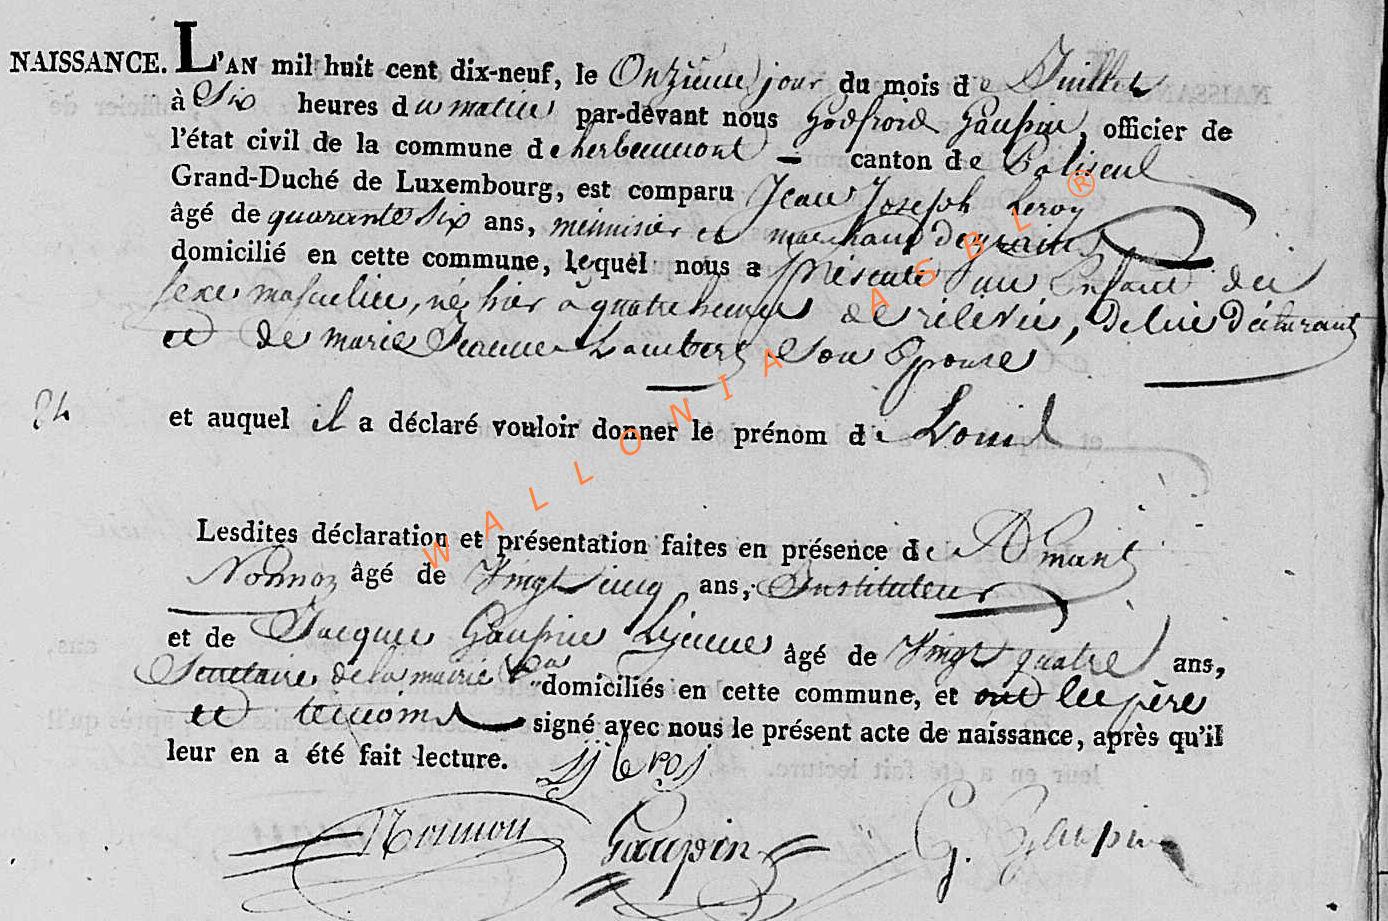 NAISSANCE. L'AN mil huit cent dix-neuf, le Onzieme jour du mois de Juillet
à Six heures du matin par-devant nous Godfroid Gaupin, officier de
l'état civil de la commune de herbeumont — canton de Paliseul
Grand-Duché de Luxembourg, est comparu Jean Joseph Leroy
âgé de quarante six ans, menuisier et marchand
domicilié en cette commune, lequel nous a présenté un Enfant du
sexe masculin, né hier à quatre heures de rélevée, de lui déclarant
et de marie Jeanne Lambert Son Epouse
24
et auquel il a déclaré vouloir donner le prénom de Louis
Lesdites déclaration et présentation faites en présence de Amant
âgé de Vingt cinq ans, Instituteur
et de Jacques Gaupin Lejeune âgé de Vingt quatre ans,
Secretaire de la mairie domiciliés en cette commune, et ont les père
et temoins signé avec nous le présent acte de naissance, après qu'il
leur en a été fait lecture. jj leroy
Gaupin G. Gaupin
WALLONIA ASBL ®